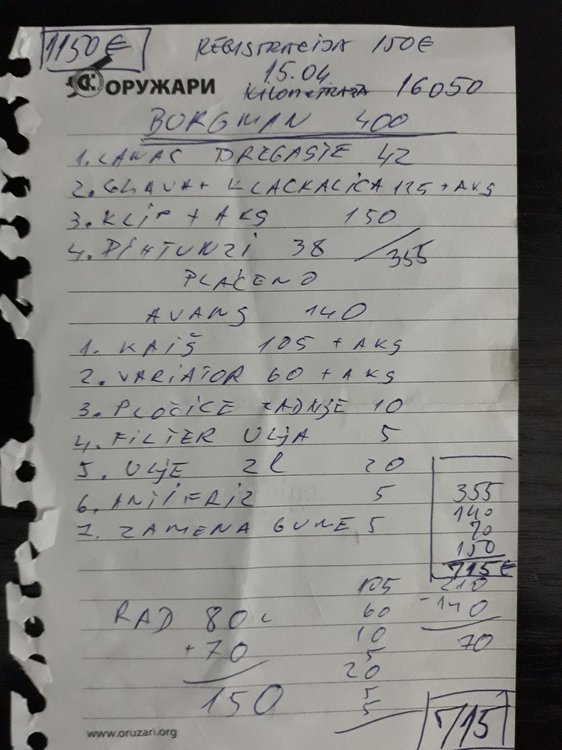 1150€
REGISTRACIJA 150€
15.04.
ОРУЖАРИ
KILOMETRAŽA 16050
BURGMAN 400
1. LANAC BREGASTE 42
2. GLAVA + KLACKALICA 125 + AKS
3. KLIP + AKS 150
4. DIHTUNZI 38 / 355
PLAĆENO
AVANS 140
1. KAIŠ 105 + AKS
2. VARIATOR 60 + AKS
3. PLOČICE ZADNJE 10
4. FILTER ULJA 5
5. ULJE 2l 20
6. ANTIFRIZ 5
7. ZAMENA GUME 5
355
140
70
150
715€
RAD 80
+70
150
105
60
10
5
20
5
5
210
-140
70
715
www.oruzari.org